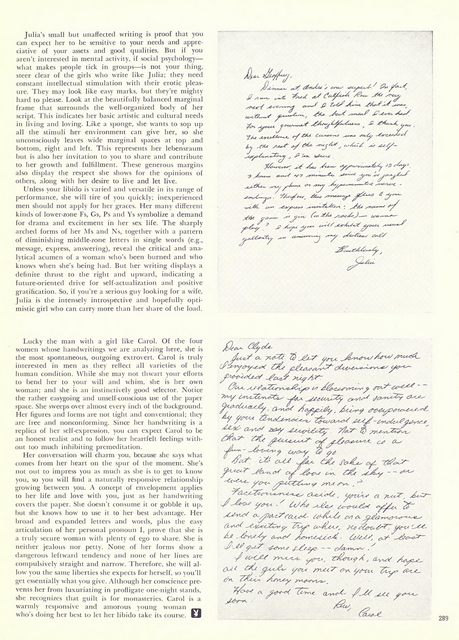 Julia's small but unaffected writing is proof that you
can expect her to be sensitive to your needs and appre-
ciative of your assets and good qualities. But if you
aren't interested in mental activity, if social psychology—
what makes people tick in groups—is not your thing,
steer clear of the girls who write like Julia; they need
constant intellectual stimulation with their erotic pleas-
ure. They may look like easy marks, but they're mighty
hard to please. Look at the beautifully balanced marginal
frame that surrounds the well-organized body of her
script. This indicates her basic artistic and cultural needs
in living and loving. Like a sponge, she wants to sop up
all the stimuli her environment can give her, so she
unconsciously leaves wide marginal spaces at top and
bottom, right and left. This represents her lebensraum
but is also her invitation to you to share and contribute
to her growth and fulfillment. These generous margins
also display the respect she shows for the opinions of
others, along with her desire to live and let live.
Unless your libido is varied and versatile in its range of
performance, she will tire of you quickly; inexperienced
men should not apply for her graces. Her many different
kinds of lower-zone Fs, Gs, Ps and Ys symbolize a demand
for drama and excitement in her sex life. The sharply
arched forms of her Ms and Ns, together with a pattern
of diminishing middle-zone letters in single words (e.g.,
message, express, answering), reveal the critical and ana-
lytical acumen of a woman who's been burned and who
knows when she's being had. But her writing displays a
definite thrust to the right and upward, indicating a
future-oriented drive for self-actualization and positive
gratification. So, if you're a serious guy looking for a wife,
Julia is the intensely introspective and hopefully opti-
mistic girl who can carry more than her share of the load.
Dear Geoffrey,
Dinner at André's was superb! In fact,
I ran into Fred at Catfish Row the very
next evening and I told him that it was,
without question, the best meal I ever had.
For your gourmet thoughtfulness, I thank you.
The excellence of the cuisine was only exceeded
by the rest of the night, which is self-
explanatory, I'm sure.
However it has been approximately 12 days
7 hours and 47 minutes since you've
either my phone or my
endings. Therefore, this message flies to you
with an express invitation: the name of
the game is you (in the nude) — wanna
play? I hope you will exhibit your usual
gallantry in answering my
Breathlessly,
Julia
Lucky the man with a girl like Carol. Of the four
women whose handwritings we are analyzing here, she is
the most spontaneous, outgoing extrovert. Carol is truly
interested in men as they reflect all varieties of the
human condition. While she may not thwart your efforts
to bend her to your will and whim, she is her own
woman; and she is an instinctively good selector. Notice
the rather easygoing and unself-conscious use of the paper
space. She sweeps over almost every inch of the background.
Her figures and forms are not tight and conventional; they
are free and nonconforming. Since her handwriting is a
replica of her self-expression, you can expect Carol to be
an honest realist and to follow her heartfelt feelings with-
out too much inhibiting premeditation.
Her conversation will charm you, because she says what
comes from her heart on the spur of the moment. She's
not out to impress you as much as she is to get to know
you, so you will find a naturally responsive relationship
growing between you. A concept of envelopment applies
to her life and love with you, just as her handwriting
covers the paper. She doesn't consume it or gobble it up,
but she knows how to use it to her best advantage. Her
broad and expanded letters and words, plus the easy
articulation of her personal pronoun I, prove that she is
a truly secure woman with plenty of ego to share. She is
neither jealous nor petty. None of her forms show a
dangerous leftward tendency and none of her lines are
compulsively straight and narrow. Therefore, she will al-
low you the same liberties she expects for herself, so you'll
get essentially what you give. Although her conscience pre-
vents her from luxuriating in profligate one-night stands,
she recognizes that guilt is for monasteries. Carol is a
warmly responsive and amorous young woman
who's doing her best to let her libido take its course.
Dear Clyde
Just a note to let you know how much
I enjoyed the pleasant diversions you
provided last night.
Our relationship is blossoming out well --
my instincts for security and sanity are
gradually, and happily, being overpowered
by your tendencies toward self-indulgence,
sex and sexy servility. Not to mention
that the pursuit of pleasure is a
fun-loving way to go.
But it's all for the sake of that
great land of love in the sky -- or
were you putting me on?"
Facetiousness aside, you're a nut, but
I love you! Who else would offer to
send a postcard while on a glamorous
and exciting trip where, no doubt, you'll
be lonely and homesick. Well, at least
I'll get some sleep -- damn.
I will miss you, though, and hope
all the girls you meet on your trip are
on their honeymoons.
Have a good time and I'll see you
soon.
Carol
289